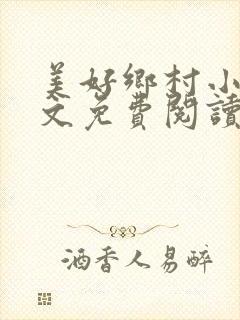 美好鄉村小
文免費閱讀
酒香人易醉